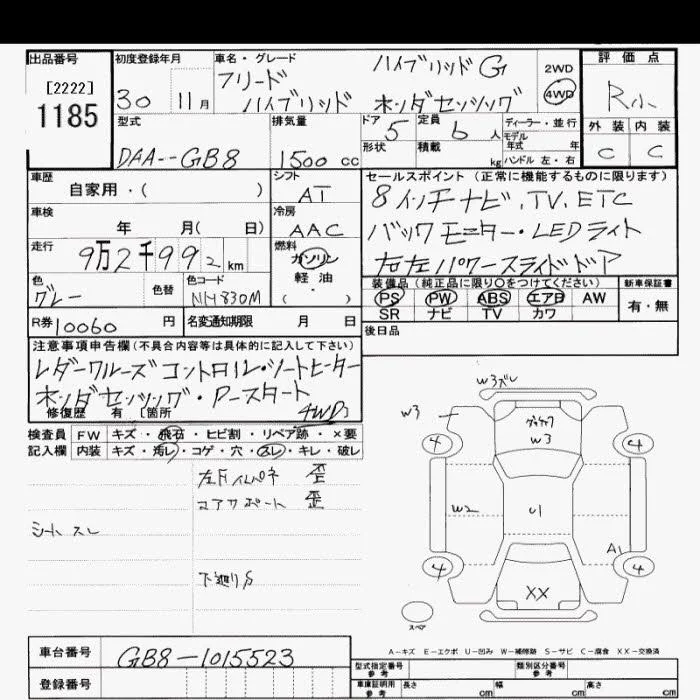 出品番号 初度登録年月 車名・グレード 評価点
[2222]
1185
30 11月 フリード ハイブリッド G 2WD
ハイブリッド ホンダセンシング 4WD R小
型式 排気量 ドア 5 定員 6 人 ディーラー・並行 外装 内装
モデル年式 年
DAA--GB8 1500 cc 形状 積載 kg ハンドル 左・右 C C
車歴 シフト セールスポイント (正常に機能するものに限ります)
自家用・( ) AT 8インチナビ、TV、ETC
車検 冷房
年 月( 日) AAC バックモニター・LEDライト
走行 燃料
9万2千992 km ガソリン 右左パワースライドドア
色 色替 色コード 軽油 装備品 (純正品に限り○をつけてください) 新車保証書
グレー NH830M ・( ) PS PW ABS エアB AW 有・無
SR ナビ TV カワ
R券 10060 円 名変通知期限 月 日 後日品
注意事項申告欄 (不具合内容等は具体的に記入して下さい)
レダークルーズコントロール・シートヒーター
ホンダセンシング・Pースタート
修復歴 有 [箇所 4WD
検査員 FW キズ・飛石・ヒビ割・リペア跡・×要
記入欄 内装 キズ・汚レ・コゲ・穴・スレ・キレ・破レ
W3ズレ
W3
W3
4 4
左Fインパネ 歪
コアサポート 歪
シート スレ
W2 U1 A1
4 4
下廻りS
XX
スペア
A-キズ E-エクボ U-凹み W-補修跡 S-サビ C-腐食 XX-交換済
車台番号 GB8-1015523
型式指定番号 参考 類別区分番号 参考
登録番号 車庫証明用 参考 長さ cm 幅 cm 高さ cm